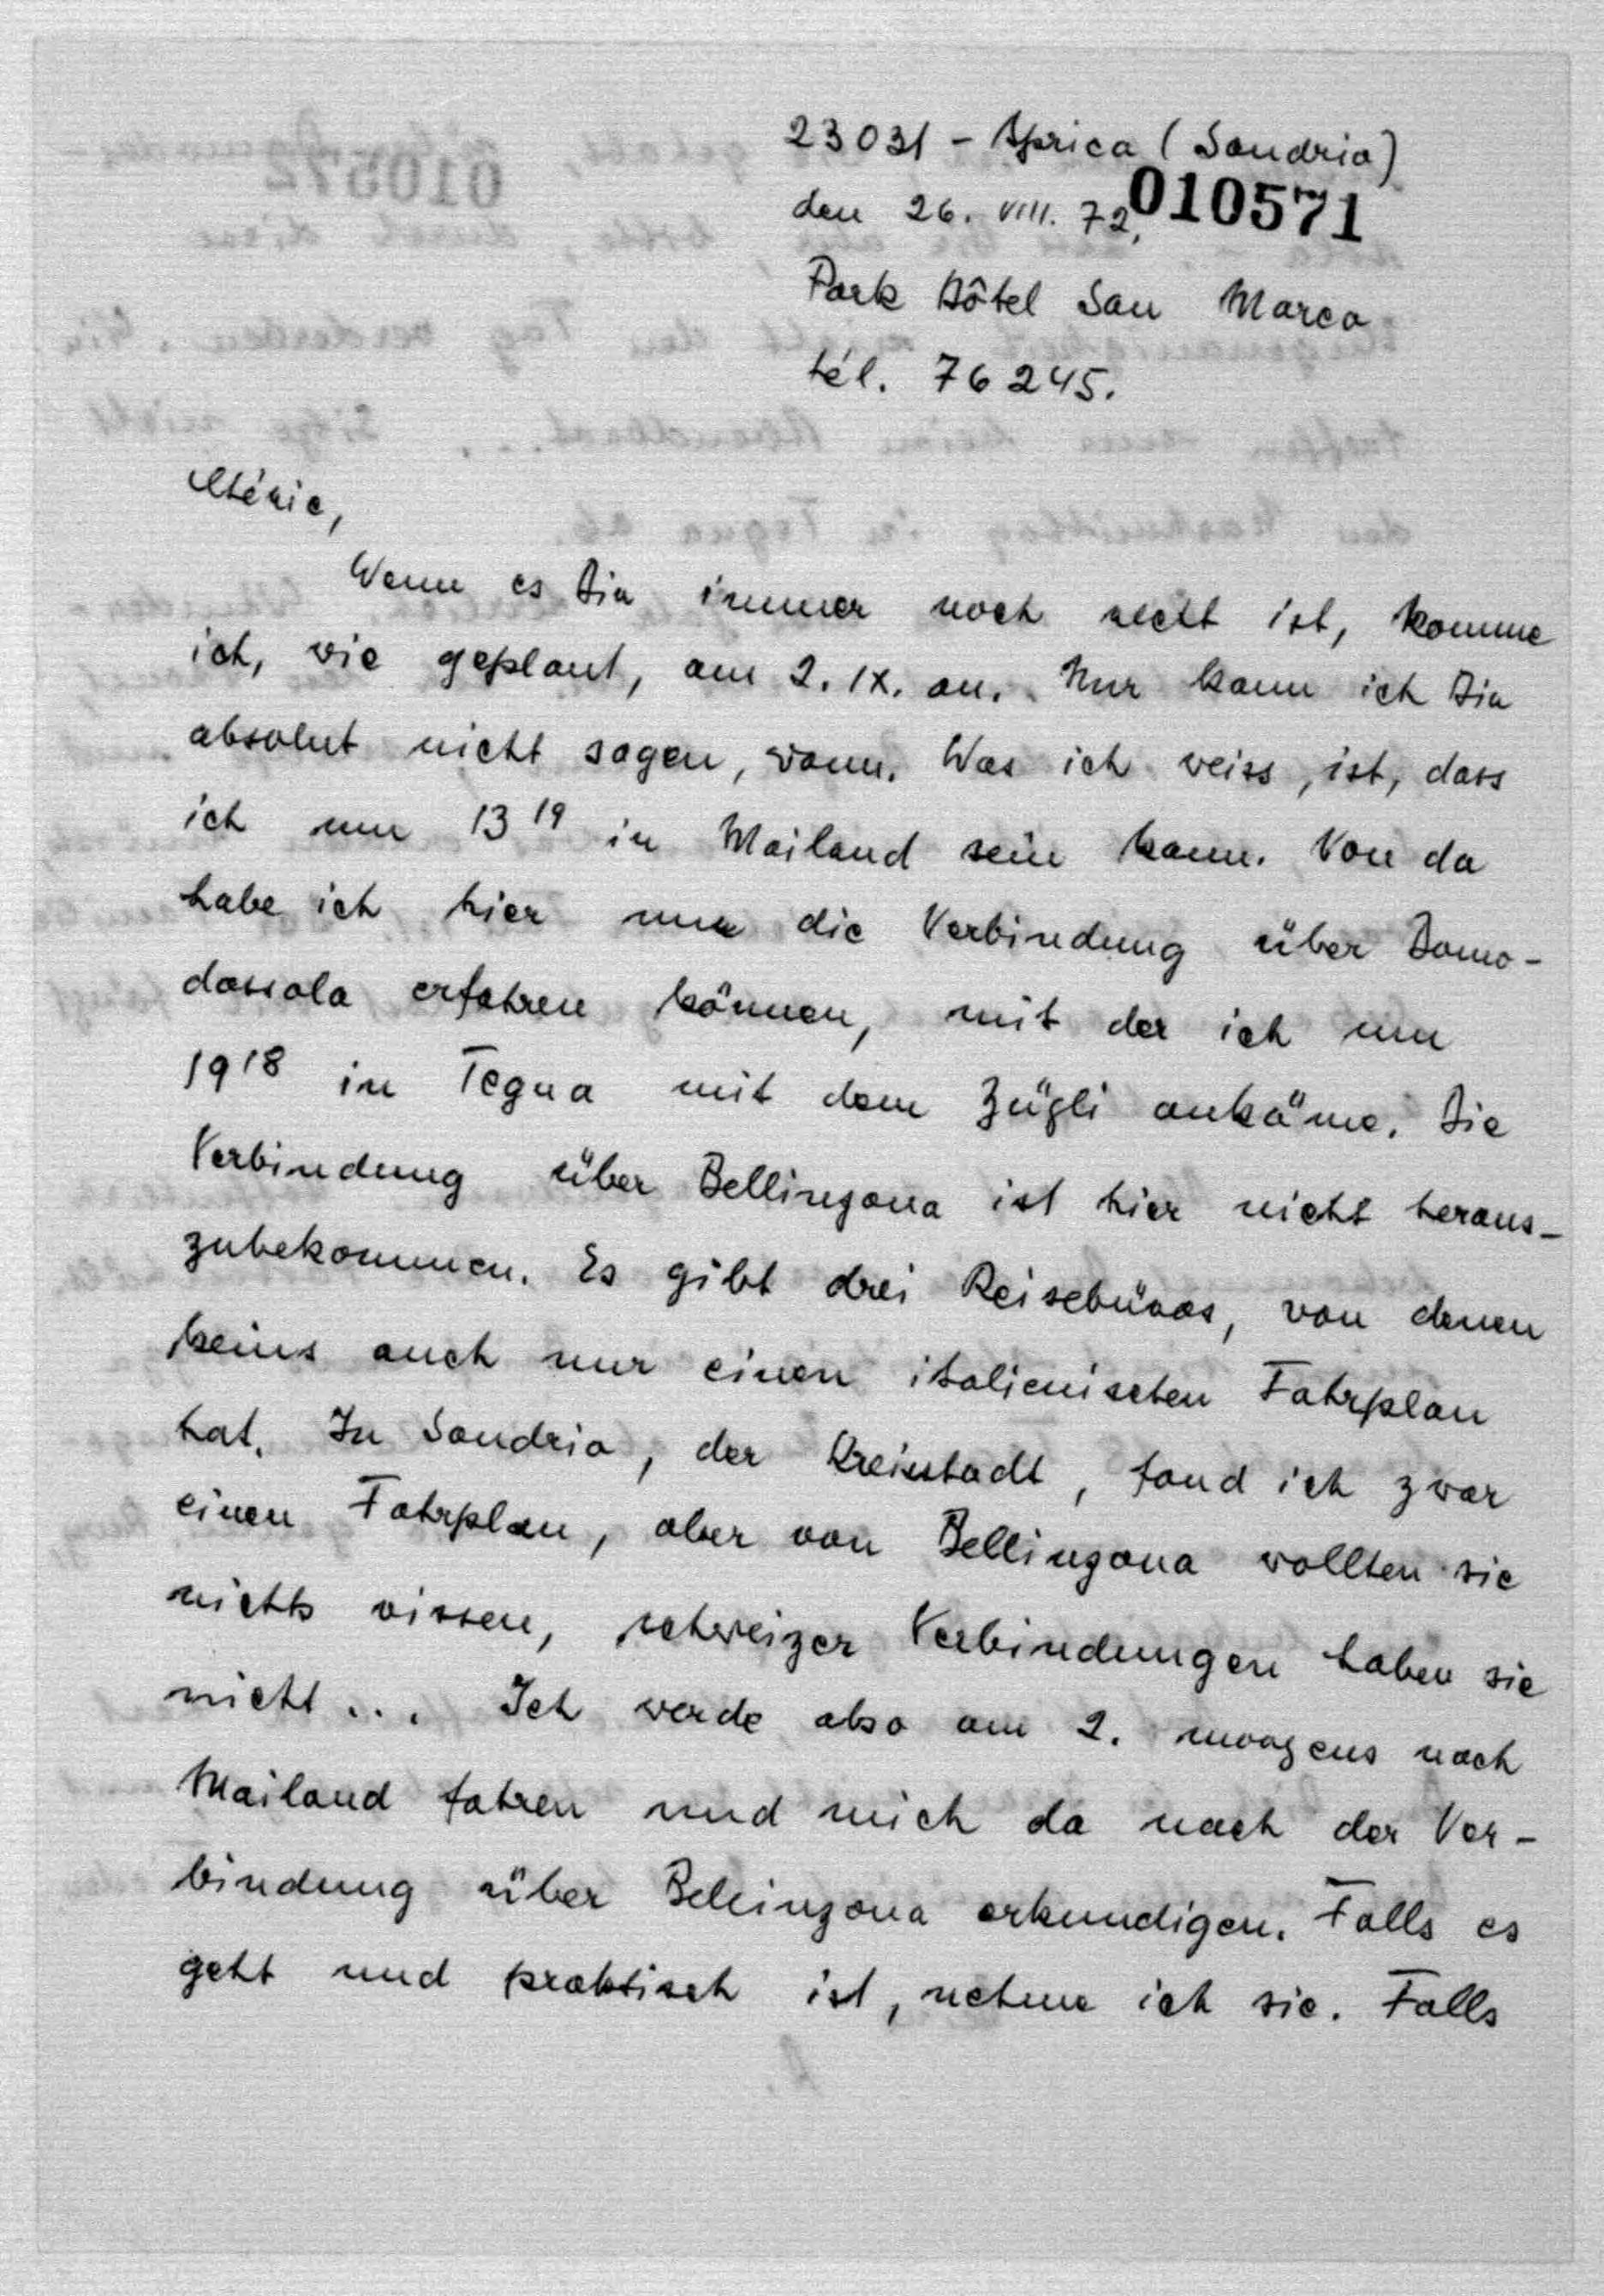 23031 - Aprica (Sondrio)
den 26. VIII. 72,
010571
Park Hôtel San Marco
tél. 76245.
Wenn es Dir immer noch recht ist, komme
ich, wie geplant, am 2. IX. an. Nur kann ich Dir
absolut nicht sagen, wann. Was ich weiss, ist, dass
ich um 13 19 in Mailand sein kann. Von da
habe ich hier nur die Verbindung über Domo-
dossola erfahren können, mit der ich um
19 18 in Tegna mit dem Zügli ankäme. Die
Verbindung über Bellinzona ist hier nicht heraus-
zubekommen. Es gibt drei Reisebüros, von denen
keins auch nur einen italienischen Fahrplan
hat. In Sondrio, der Kreisstadt, fand ich zwar
einen Fahrplan, aber von Bellinzona wollten sie
nichts wissen, schweizer Verbindungen haben sie
nicht... Ich werde also am 2. morgens nach
Mailand fahren und mich da nach der Ver-
bindung über Bellinzona erkundigen. Falls es
geht und praktisch ist, nehme ich sie. Falls